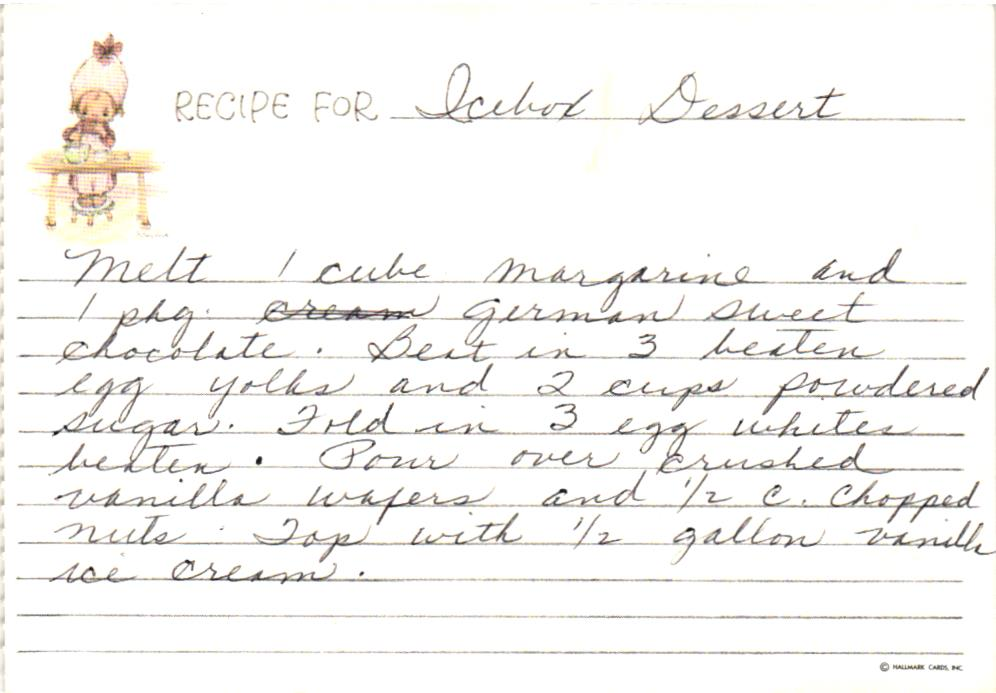 RECIPE FOR Icebox Dessert
Melt 1 cube margarine and
1 pkg. cream German sweet
chocolate. Beat in 3 beaten
egg yolks and 2 cups powdered
sugar. Fold in 3 egg whites
beaten. Pour over crushed
vanilla wafers and 1/2 c. chopped
nuts. Top with 1/2 gallon vanilla
ice cream.
© HALLMARK CARDS, INC.